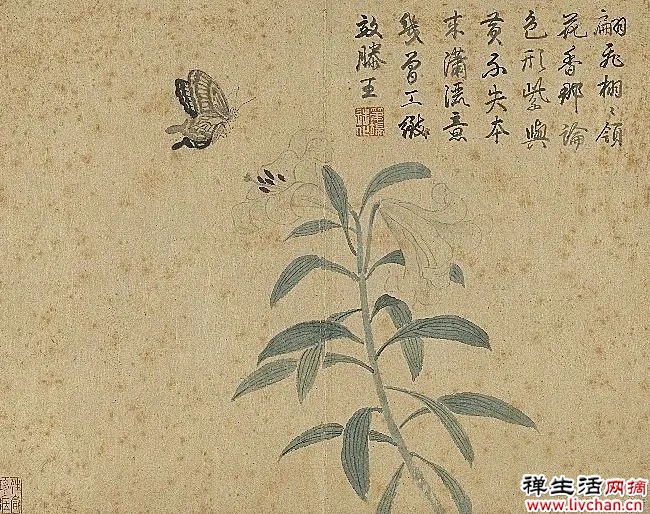 翩飛栩〻領
花香那論
色形紫與
黃不失本
來瀟灑意
幾曾工緻
效滕王
禅生活网摘
www.livchan.cn